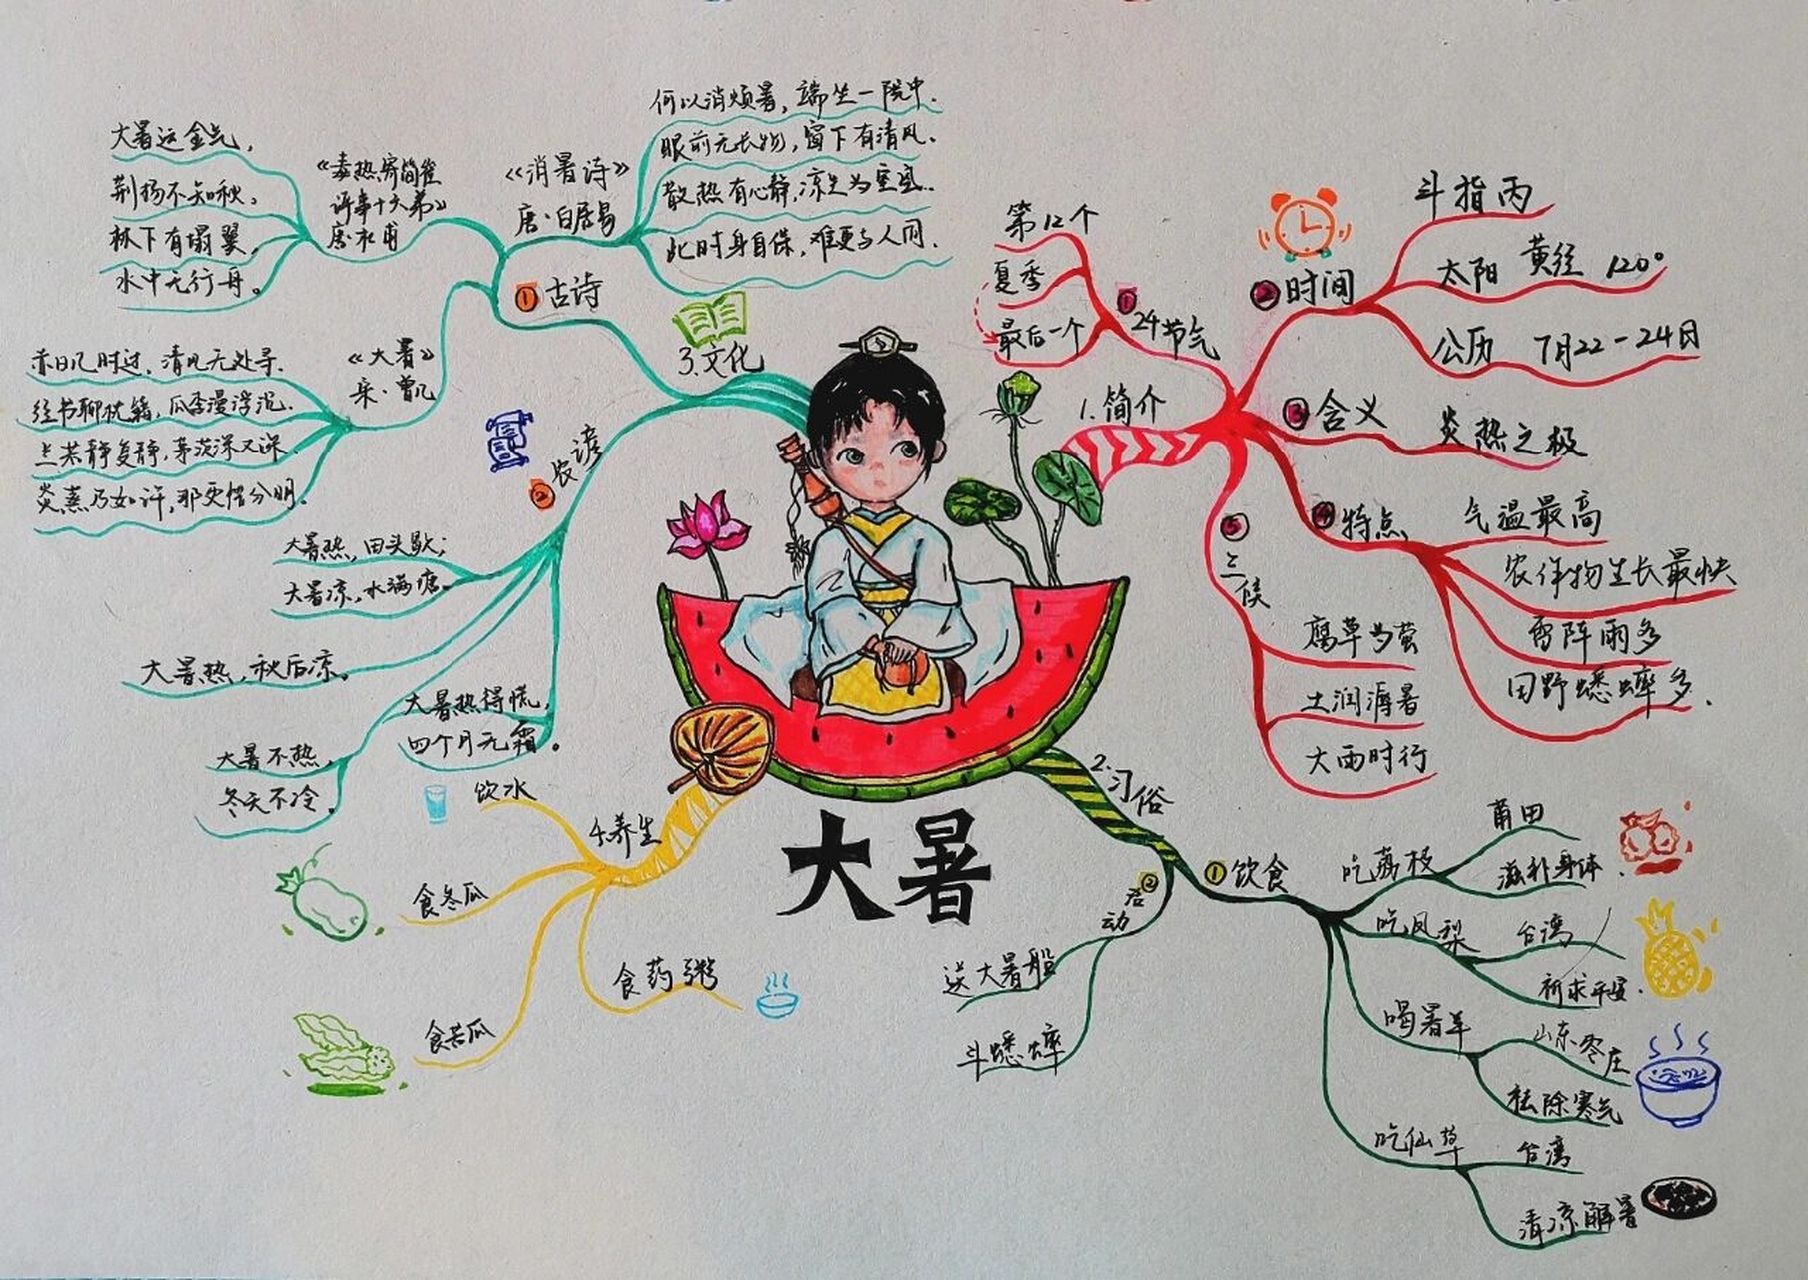 大暑
1.简介
①24节气
第12个
夏季
最后一个
②时间
斗指丙
太阳 黄经 120°
公历 7月22-24日
③含义
炎热之极
④特点
气温最高
农作物生长最快
雷阵雨多
田野蟋蟀多.
⑤三候
腐草为萤
土润溽暑
大雨时行
2.习俗
①饮食
吃荔枝
莆田
滋补身体.
吃凤梨
台湾
祈求平安.
喝暑羊
山东枣庄
祛除寒气
吃仙草
台湾
清凉解暑
②活动
送大暑船
斗蟋蟀
3.文化
①古诗
《消暑诗》
唐·白居易
何以消烦暑,端坐一院中.
眼前无长物,窗下有清风.
散热有心静,凉生为室空.
此时身自保,难更与人同.
《毒热寄简崔
评事十六弟》
唐·杜甫
大暑运金气,
荆扬不知秋。
林下有塌翼,
水中无行舟。
《大暑》
宋·曾几
赤日几时过,清风无处寻.
经书聊枕籍,瓜李漫浮沉.
兰若静复静,茅茨深又深.
炎蒸乃如许,那更惜分明.
②农谚
大暑热,田头歇;
大暑凉,水满塘。
大暑热,秋后凉。
大暑热得慌,
四个月无霜。
大暑不热,
冬天不冷.
4.养生
饮水
食冬瓜
食苦瓜
食药粥